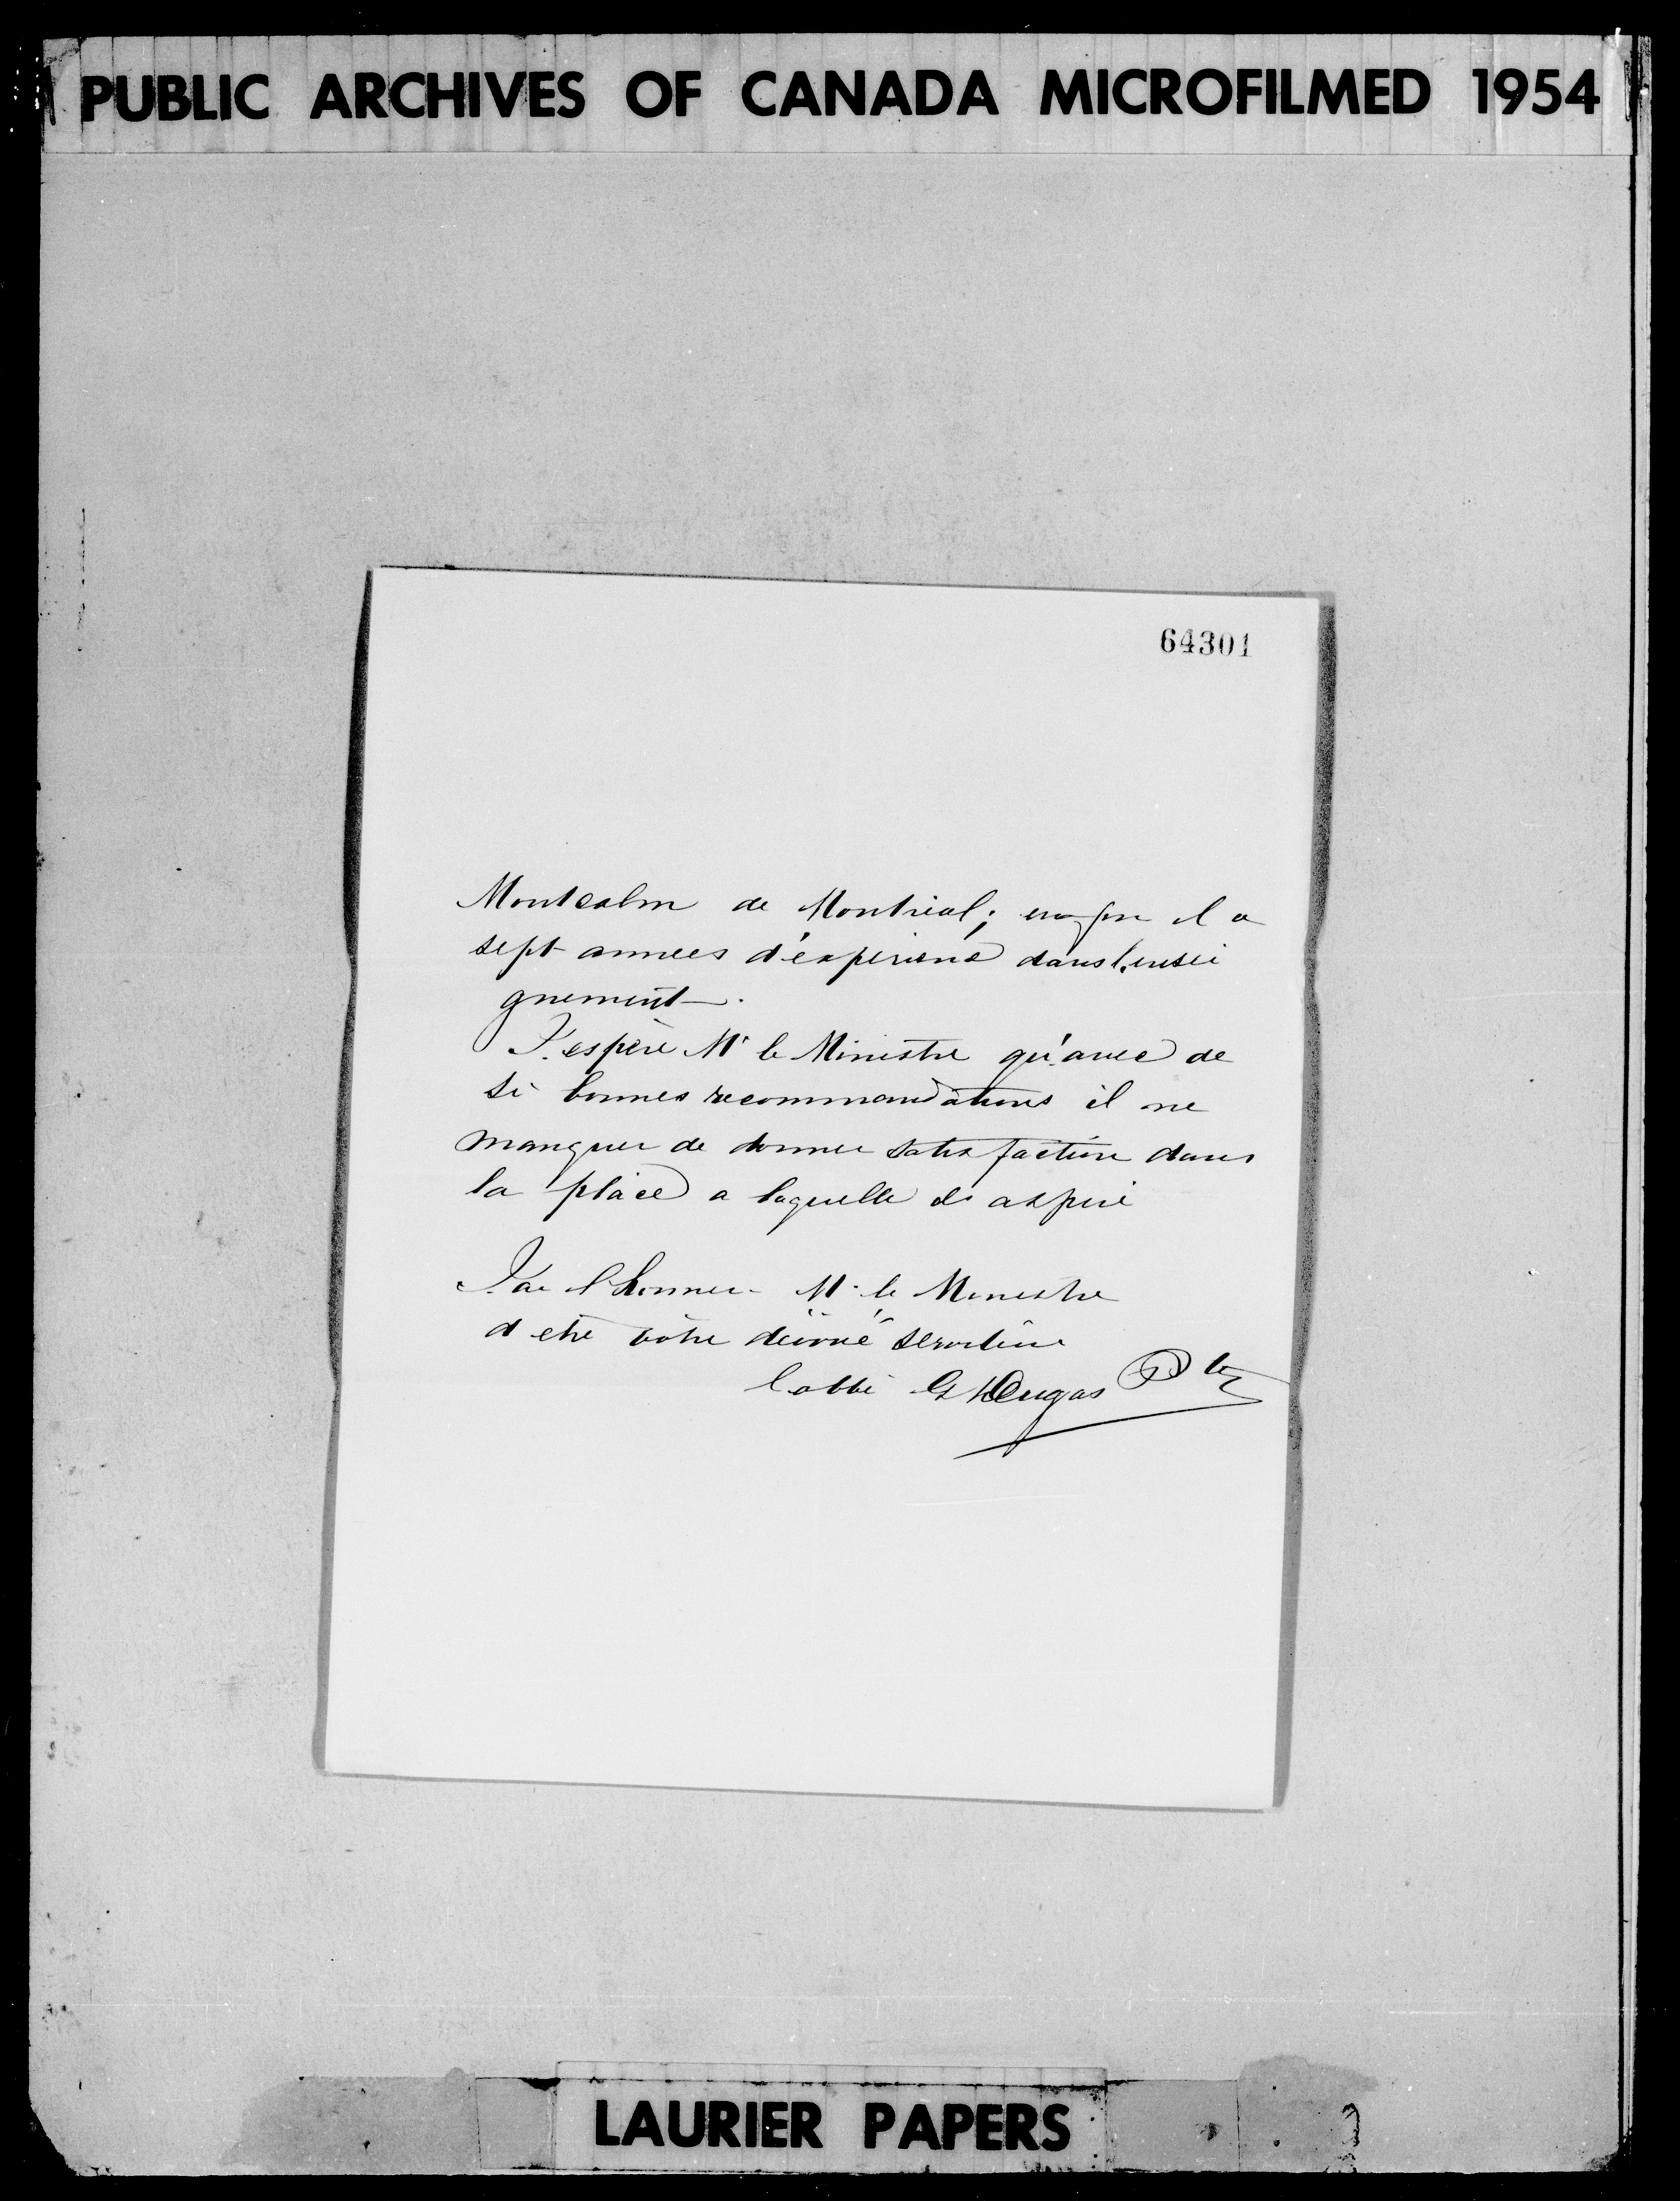 PUBLIC ARCHIVES OF CANADA MICROFILMED 1954
64301
Montcalm de Montréal; enfin il a
sept années d'expérience dans l'ensei
gnement.
J'espère Mr le Ministre qu'avec de
si bonnes recommandations il ne
manquer de donner satisfaction dans
la place a laquelle il aspire
J'ai l'honneur Mr le Ministre
d'etre votre dévoué serviteur
l'abbé G Dugas Ptre
LAURIER PAPERS